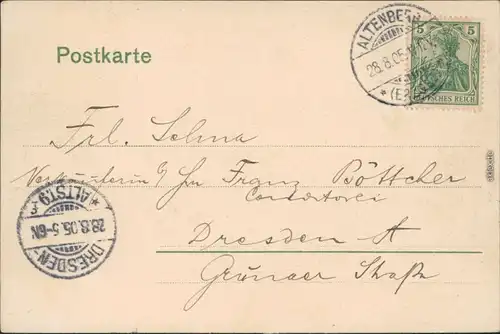 Postkarte
ALTENBERG
28.8.05
* (ERZG
5 5
DEUTSCHES REICH
Frl. Selma
Verkäuferin b/ Hr. Franz Böttcher
Conditorei
Dresden A
Grunaer Straße
DRESDEN-
28.8.05. 5-6N.
* ALTST.9 f